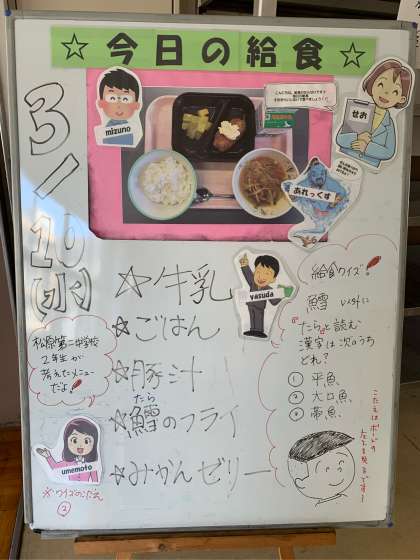 ☆今日の給食☆
3/10
(水)
mizuno
せお
あれっくす
yasuda
☆牛乳
☆ごはん
☆豚汁
たら
☆鱈のフライ
☆みかんゼリー
松原第二中学校
2年生が
考えたメニュー
だよ!
umemoto
※クイズのこたえ
②
給食クイズ!
鱈 以外に
"たら"と読む
漢字は次のうち
どれ?
① 平魚
② 大口魚
③ 帯魚
こたえはボードの
左下を見るです!